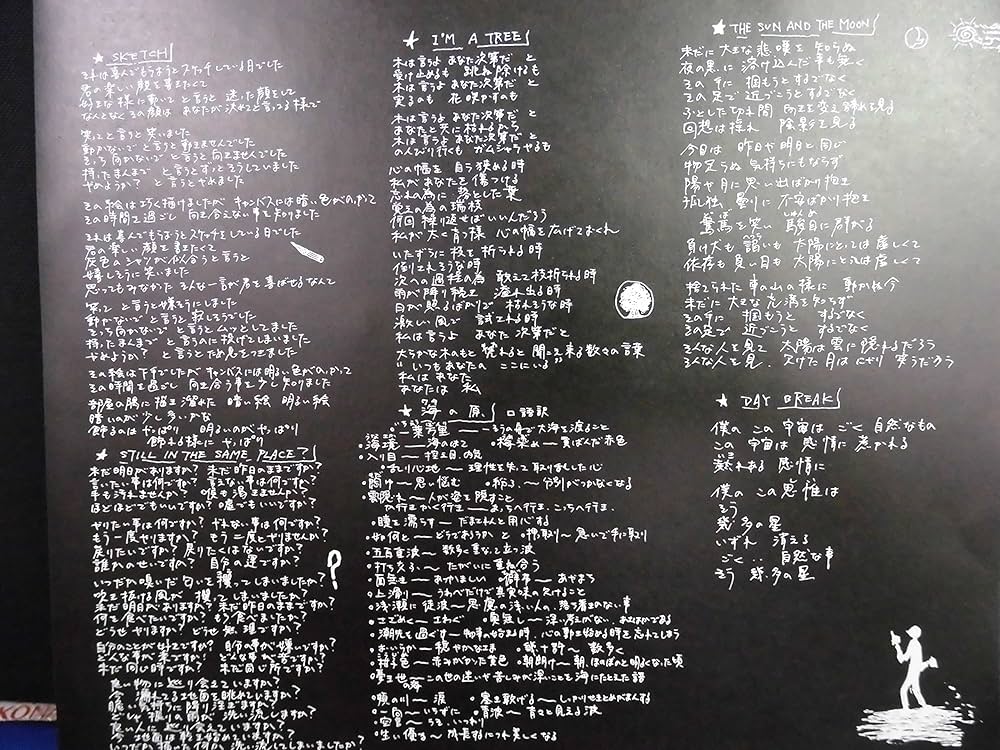 ★ SKETCH
それは喜んでもらおうとスケッチしている日でした
君の楽しい顔を書きたくて
好きな様に動いて と言うと 迷った顔をして
なんとなくその顔は あなたが決めてと言ってる様で
笑ってと言うと笑いました
動かないで と言うと動きませんでした
そっち向かないで と言うと向きませんでした
持ったまんまで と言うとずっとそうしていました
やめようか? と言うとやめました
その絵は巧く描けましたが キャンバスには暗い色がのっかって
その時間を過ごし 向き合えない事も知りました
それは喜んでもらおうとスケッチをしている日でした
君の楽しい顔を書きたくて
灰色のシャツが似合うと言うと
嬉しそうに笑いました
思ってもみなかった そんな一言が君を喜ばせるなんて
笑って と言うと嬉そうにしました
動かないで と言うと寂しそうでした
そっち向かないで と言うとムッとしてました
持ったまんまで と言うのに投げてしまいました
やめようか? と言うとため息をつきました
その絵は下手でしたが キャンバスには明るい色がのっかって
その時間を過ごし 向き合う事を少し知りました
部屋の隅に 描き溜れた 暗い絵 明るい絵
暗いのが少し多いかな
飾るのはやっぱり 明るいのがやっぱり
飾れる様に やっぱり
★ STILL IN THE SAME PLACE?
まだ明日がありますか? まだ昨日のままですか?
言いたい事は何ですか? 言えない事は何ですか?
手も汚れませんか? 喉も渇きませんか?
ほどほどでもいいですか? 嘘でもいいですか?
やりたい事は何ですか? やれない事は何ですか?
もう一度やりますか? もう二度とやりませんか?
戻りたいですか? 戻りたくはないですか?
誰かのせいですか? 自分の運ですか?
いつだか嗅いだ匂いを攫ってしまいましたか?
吹き抜ける風が 攫ってしまいましたか?
まだ明日がありますか? まだ昨日のままですか?
何を食べたいですか? もう食べましたか?
どうせやりますか? どうせ無理ですか?
自分のことが好きですか? 自分の事が嫌いですか?
こんな事が楽ですか? そんな事が苦ですか?
まだ同じ時ですか? まだ同じ所ですか?
良い物に 巡り会えていますか?
今 濡れてる地面を眺めていますか?
眩い気持ちに降り注ぎますか?
どしゃ降りの雨が 洗い流しますか?
良い人に 巡り会えていますか?
今 地面は 乾き始めていますか?
いつだか描いた何か 洗い流してしまいましたか?
?
★ I'M A TREE
木は言うよ あなた次第だ と
受け止めるも 跳ね除けるも
木は言うよ あなた次第だ と
実るのも 花咲かすのも
木は言うよ あなた次第だ と
あなたと共に枯れるから
木は言うよ あなた次第だ と
のんびり行くも ガムシャラやるも
心の幅を 自ら狭める時
私があなたを傷つける
忘れの為に 落とした葉
変える為の瑞枝
何回 繰り返せばいいんだろう
私が太く育つ様 心の幅を広げておくれ
いたずらに枝を 折られる時
倒されそうな時
次への過程の為 敢えて枝折られる時
雨が降り続き 溢れ出る時
日が照るばかりで 枯れそうな時
激しい風で 試される時
私は言うよ あなた次第だと
大らかな木のもと 凭れると 聞こえ来る数々の言葉
“いつもあなたの ここにいる”
私は あなた
あなたは 私
★ 海の原 口語訳
・一葉の身里 〜 そう身で大海を渡ること
・海境 〜 海のはて ・梅染れ 〜 黄ばんだ赤色
・入り目 〜
・乱り心地 〜 理性を失って取り乱した心
・悶け 〜 思い悩む ・紛ふ 〜 分別がつかなくなる
・雲隠れ 〜 人が姿を隠すこと
・か行きかく行き 〜 あっちへ行き、こっちへ行き
・瞳を濡らす 〜 だまされんと用心する
・如何と 〜 どうであろうか と ・掻取り 〜 急いで手に取り
・五百重波 〜 数多く重なって立つ波
・打ち交ふ 〜 たがいに重ね合う
・面無き 〜 おかしい ・僻事 〜 あやまち
・上滑り 〜 うわべだけで真実味の欠けること
・浅瀬に徒波 〜 思慮の浅い人の、落ち着きのない事
・さざめく 〜 さわぐ ・奥無し 〜 深い考えがない、おおはかである
・潮先を過ぐす 〜 物事の始まる時、心の動き始める時を忘れてしまう
・おいらか 〜 穏やかなさま ・既十許 〜 数多く
・褐色 〜 赤みがかった黄色 ・朝開け 〜 朝、ほのぼのと明るくなった頃
・夢之世の海 〜 この世の迷いや苦しみが深いことを海にたとえた語
・頬の川 〜 涙 ・塞を敧げる 〜 しっかりせきとめておさめる
・一向 〜 いちずに ・青波 〜 青々と見える波
・空言 〜 うそ、いつわり
・生い優る 〜 成長するにつれ美しくなる
★ THE SUN AND THE MOON
未だに 大きな悲嘆を 知らぬ
夜の黒に 溶け込んだ事も無く
その手に 掴もうと するでなく
その足で 近づこうとするでなく
ふとした切れ間 向きを変え 離れを見る
回想は 揺れ 陰影を見る
今日は 昨日や明日と 同じ
物足らぬ 気持ちにもならず
陽や月に 思い出ばかり抱き
孤独、曇りに 不安ばかり抱き
駑馬を笑い 駿目に群がる
負け犬も 諂いも 太陽にとっては 虚しくて
依存も 良い目も 太陽にとっては 虚しくて
捨てられた 車の山の様に 動かぬ今
未だに 大きな充満を知らず
その手に 掴もうと するでなく
その足で 近づこうと するでなく
そんな人を見て 太陽は雲に隠れるだろう
そんな人を見、欠けた月はにやり 笑うだろう
★ DAY BREAK
僕の この宇宙は ごく 自然なもの
この 宇宙は 感情に 惹かれる
溢れある 感情に
僕の この思惟は
そう
幾多の星
いずれ 消える
ごく… 自然な事
そう 幾多の星
KON